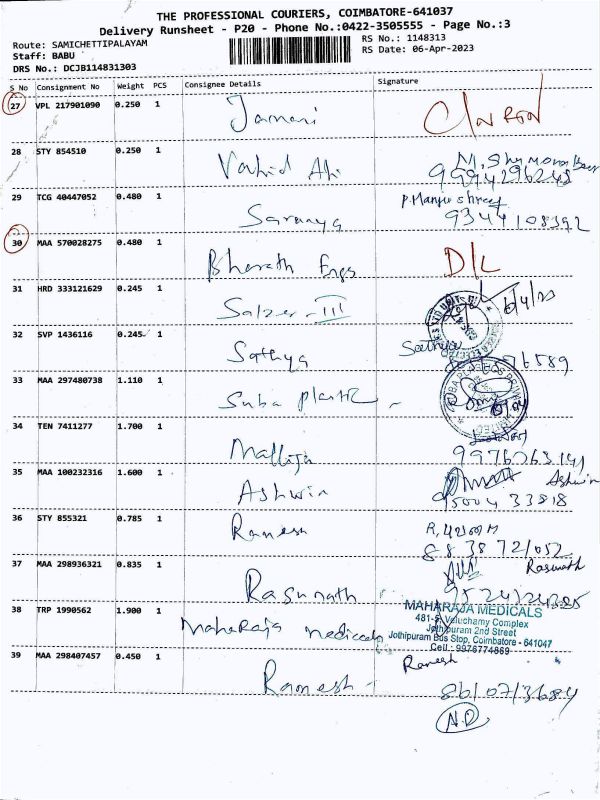 THE PROFESSIONAL COURIERS, COIMBATORE-641037
Delivery Runsheet - P20 - Phone No.:0422-3505555 - Page No.:3
Route: SAMICHETTIPALAYAM
RS No.: 1148313
Staff: BABU
RS Date: 06-Apr-2023
DRS No.: DCJB114831303
S No Consignment No Weight PCS Consignee Details Signature
27 VPL 217901090 0.250 1 Jamani
28 STY 854510 0.250 1 Vahid Ali
9994296248
29 TCG 40447052 0.480 1 Saranya P.Manju shree
9344108392
30 MAA 570028275 0.480 1 Bharath Engs D/L
31 HRD 333121629 0.245 1 Salzer-III 6/4/23
32 SVP 1436116 0.245 1 Sathya Sathya
76589
33 MAA 297480738 1.110 1 Suba plastic
34 TEN 7411277 1.700 1 Mallija
9976063141
35 MAA 100232316 1.600 1 Ashwin Ashwin
95004 33818
36 STY 855321 0.785 1 Ramesh
88 38 721052
37 MAA 298936321 0.835 1 Ragunath
38 TRP 1990562 1.900 1 Maharaja medicals
MAHARAJA MEDICALS
Veluchamy Complex
Jothipuram 2nd Street
Jothipuram Bus Stop, Coimbatore - 641047
Cell : 9976774869
39 MAA 298407457 0.450 1 Ramesh Ramesh
8610713684
N.D